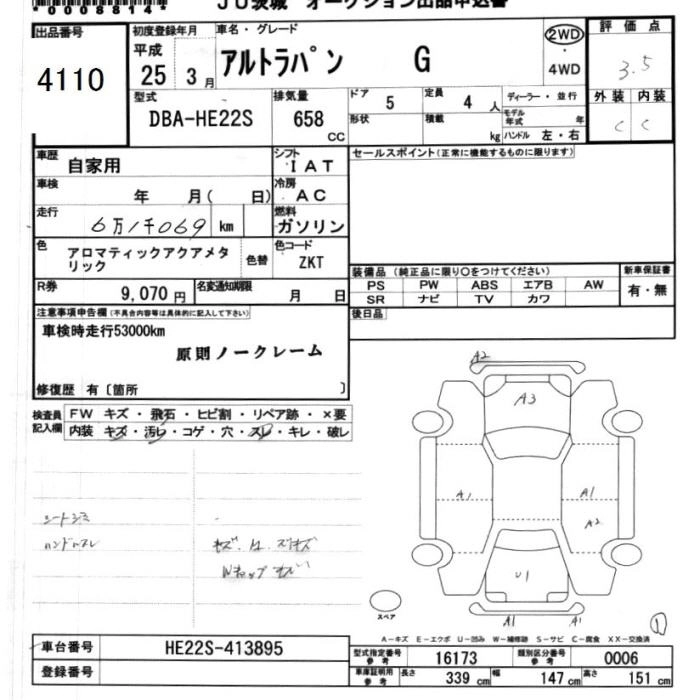 *0008814*
JU茨城 オークション出品申込書
出品番号 初度登録年月 車名・グレード 評価点
4110 平成 25 3月 アルトラパン G 2WD 4WD 3.5
型式 排気量 ドア 5 定員 4人 ディーラー・並行 外装 内装
DBA-HE22S 658 CC 形状 積載 kg モデル年式 年 ハンドル 左・右 C C
車歴 自家用 シフト IAT セールスポイント(正常に機能するものに限ります)
車検 年 月( 日) 冷房 AC
走行 6万1千069 km 燃料 ガソリン
色 アロマティックアクアメタリック 色替 色コード ZKT
装備品 (純正品に限り○をつけてください) 新車保証書
R券 9,070円 名変通知期限 月 日 PS PW ABS エアB AW 有・無
SR ナビ TV カワ
注意事項申告欄(不具合内容等は具体的に記入して下さい) 後日品
車検時走行53000km
原則ノークレーム
修復歴 有〔箇所 〕
検査員記入欄 FW キズ・飛石・ヒビ割・リペア跡・×要
内装 キズ・汚レ・コゲ・穴・スレ・キレ・破レ
A2
A3
A1 A1
A2
シートシミ
ハンドルスレ
U1
スペア
A1 A1
①
A-キズ E-エクボ U-凹み W-補修跡 S-サビ C-腐食 XX-交換済
車台番号 HE22S-413895 型式指定番号 参考 16173 類別区分番号 参考 0006
登録番号 車庫証明用 参考 長さ 339 cm 幅 147 cm 高さ 151 cm